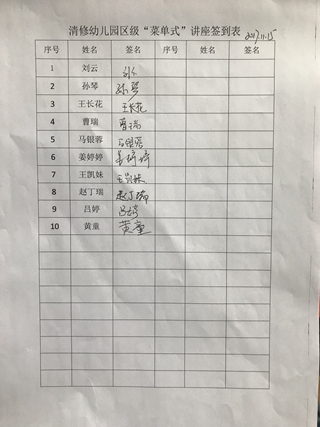 清修幼儿园区级“菜单式”讲座签到表 2017.11.15
序号 姓名 签名 姓名 签名
1 刘云
2 孙琴 孙琴
3 王长花 王长花
4 曹瑞 曹瑞
5 马银蓉 马银蓉
6 姜婷婷 姜婷婷
7 王凯妹 王凯妹
8 赵丁瑞 赵丁瑞
9 吕婷 吕婷
10 黄童 黄童